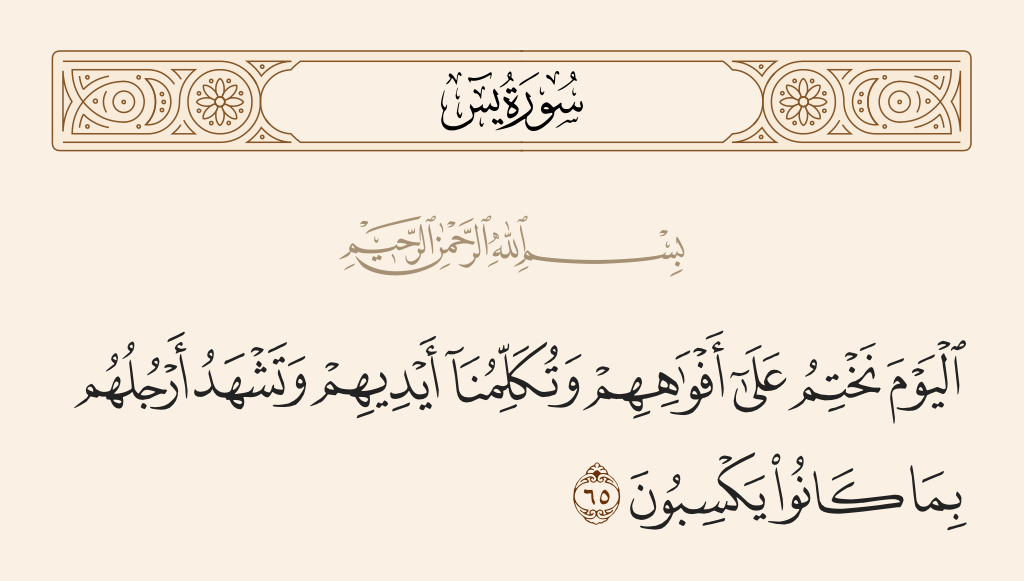 سُورَةُ يسٓ
بِسْمِ ٱللَّهِ ٱلرَّحْمَٰنِ ٱلرَّحِيمِ
ٱلْيَوْمَ نَخْتِمُ عَلَىٰٓ أَفْوَٰهِهِمْ وَتُكَلِّمُنَآ أَيْدِيهِمْ وَتَشْهَدُ أَرْجُلُهُم
بِمَا كَانُوا۟ يَكْسِبُونَ ٦٥